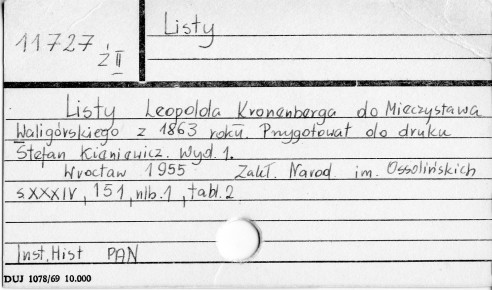 Listy
11727
Ż II
Listy Leopolda Kronenberga do Mieczysława
Waligórskiego z 1863 roku. Przygotował do druku
Stefan Kieniewicz. Wyd. 1.
Wrocław 1955 Zakł. Narod im. Ossolińskich
s. XXXIV, 151, nlb. 1, tabl. 2
Inst. Hist PAN
DUJ 1078/69 10.000